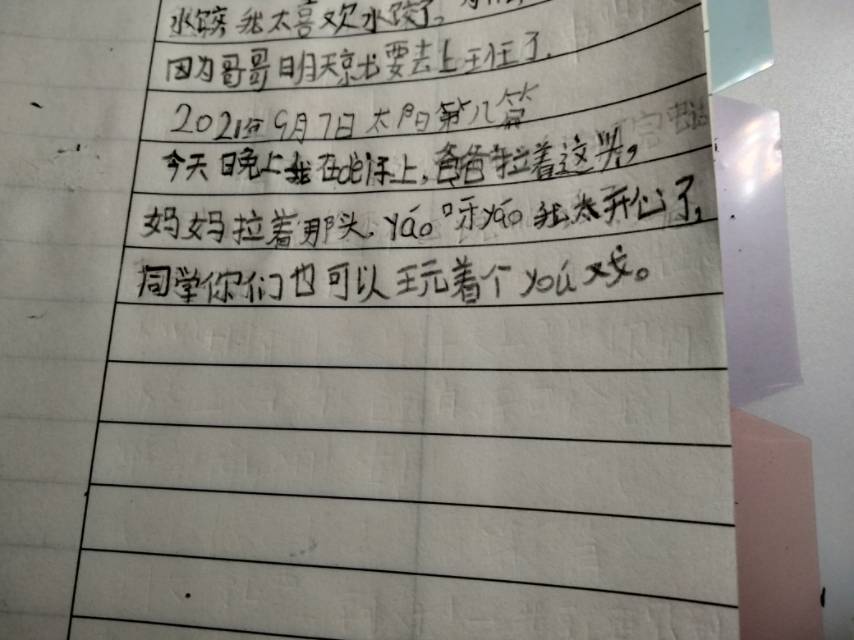 水饺我太喜欢水饺了。
因为哥哥明天就要去上王任了.
2021年9月7日太阳第八篇
今天晚上我在上,爸爸拉着这头,
妈妈拉着那头.yáo呀yáo我太开心了,
同学你们也可以玩着个yóu戏。